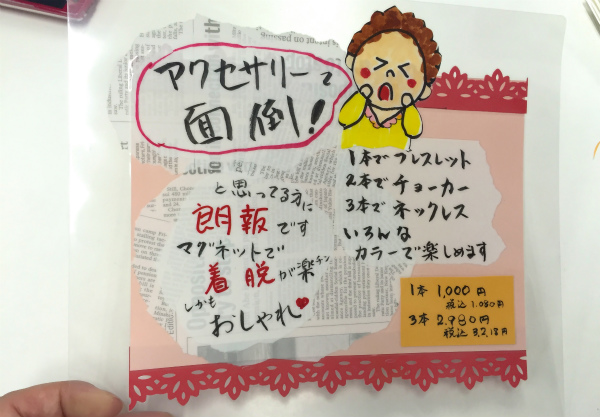 アクセサリーって
面倒！
と思ってる方に
朗報です
マグネットで
着脱が楽チン
しかも
おしゃれ♥
1本でブレスレット
2本でチョーカー
3本でネックレス
いろんな
カラーで楽しめます
1本 1,000円
税込 1.080円
3本 2,980円
税込 3,218円